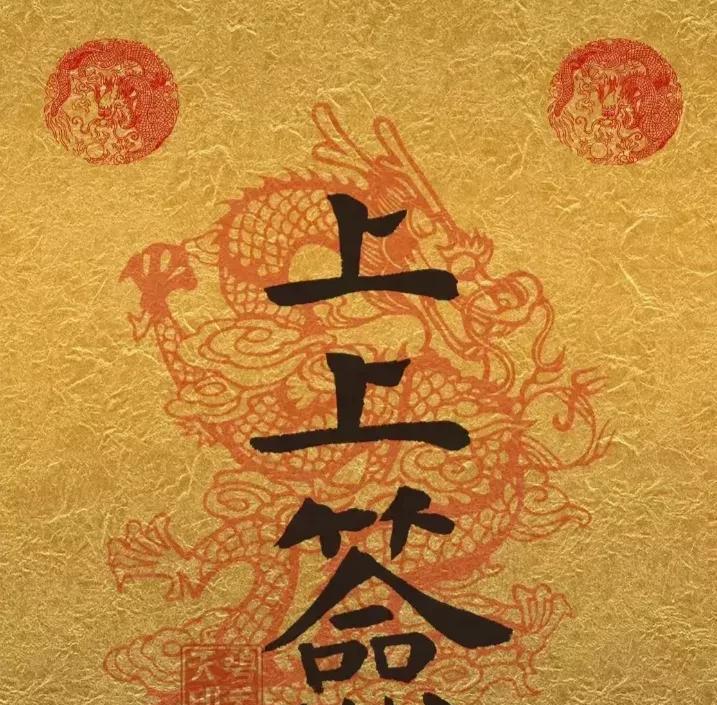 上
上
簽